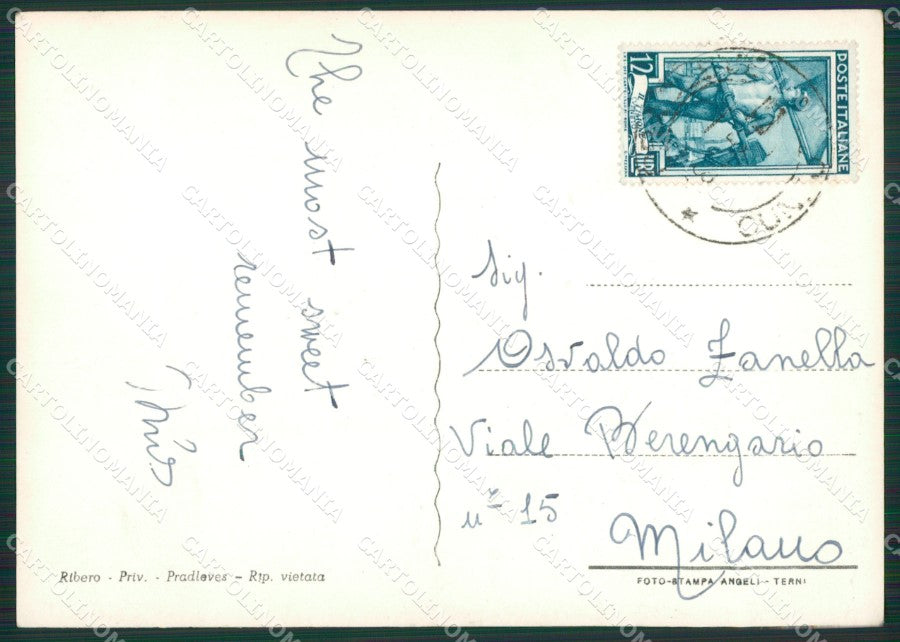 The most sweet
remember
12
POSTE ITALIANE
LIRE
Sig.
Osvaldo Zanella
Viale Berengario
n° 15
Milano
Ribero - Priv. - Pradleves - Rip. vietata
FOTO-STAMPA ANGELI - TERNI
CARTOLINOMANIA